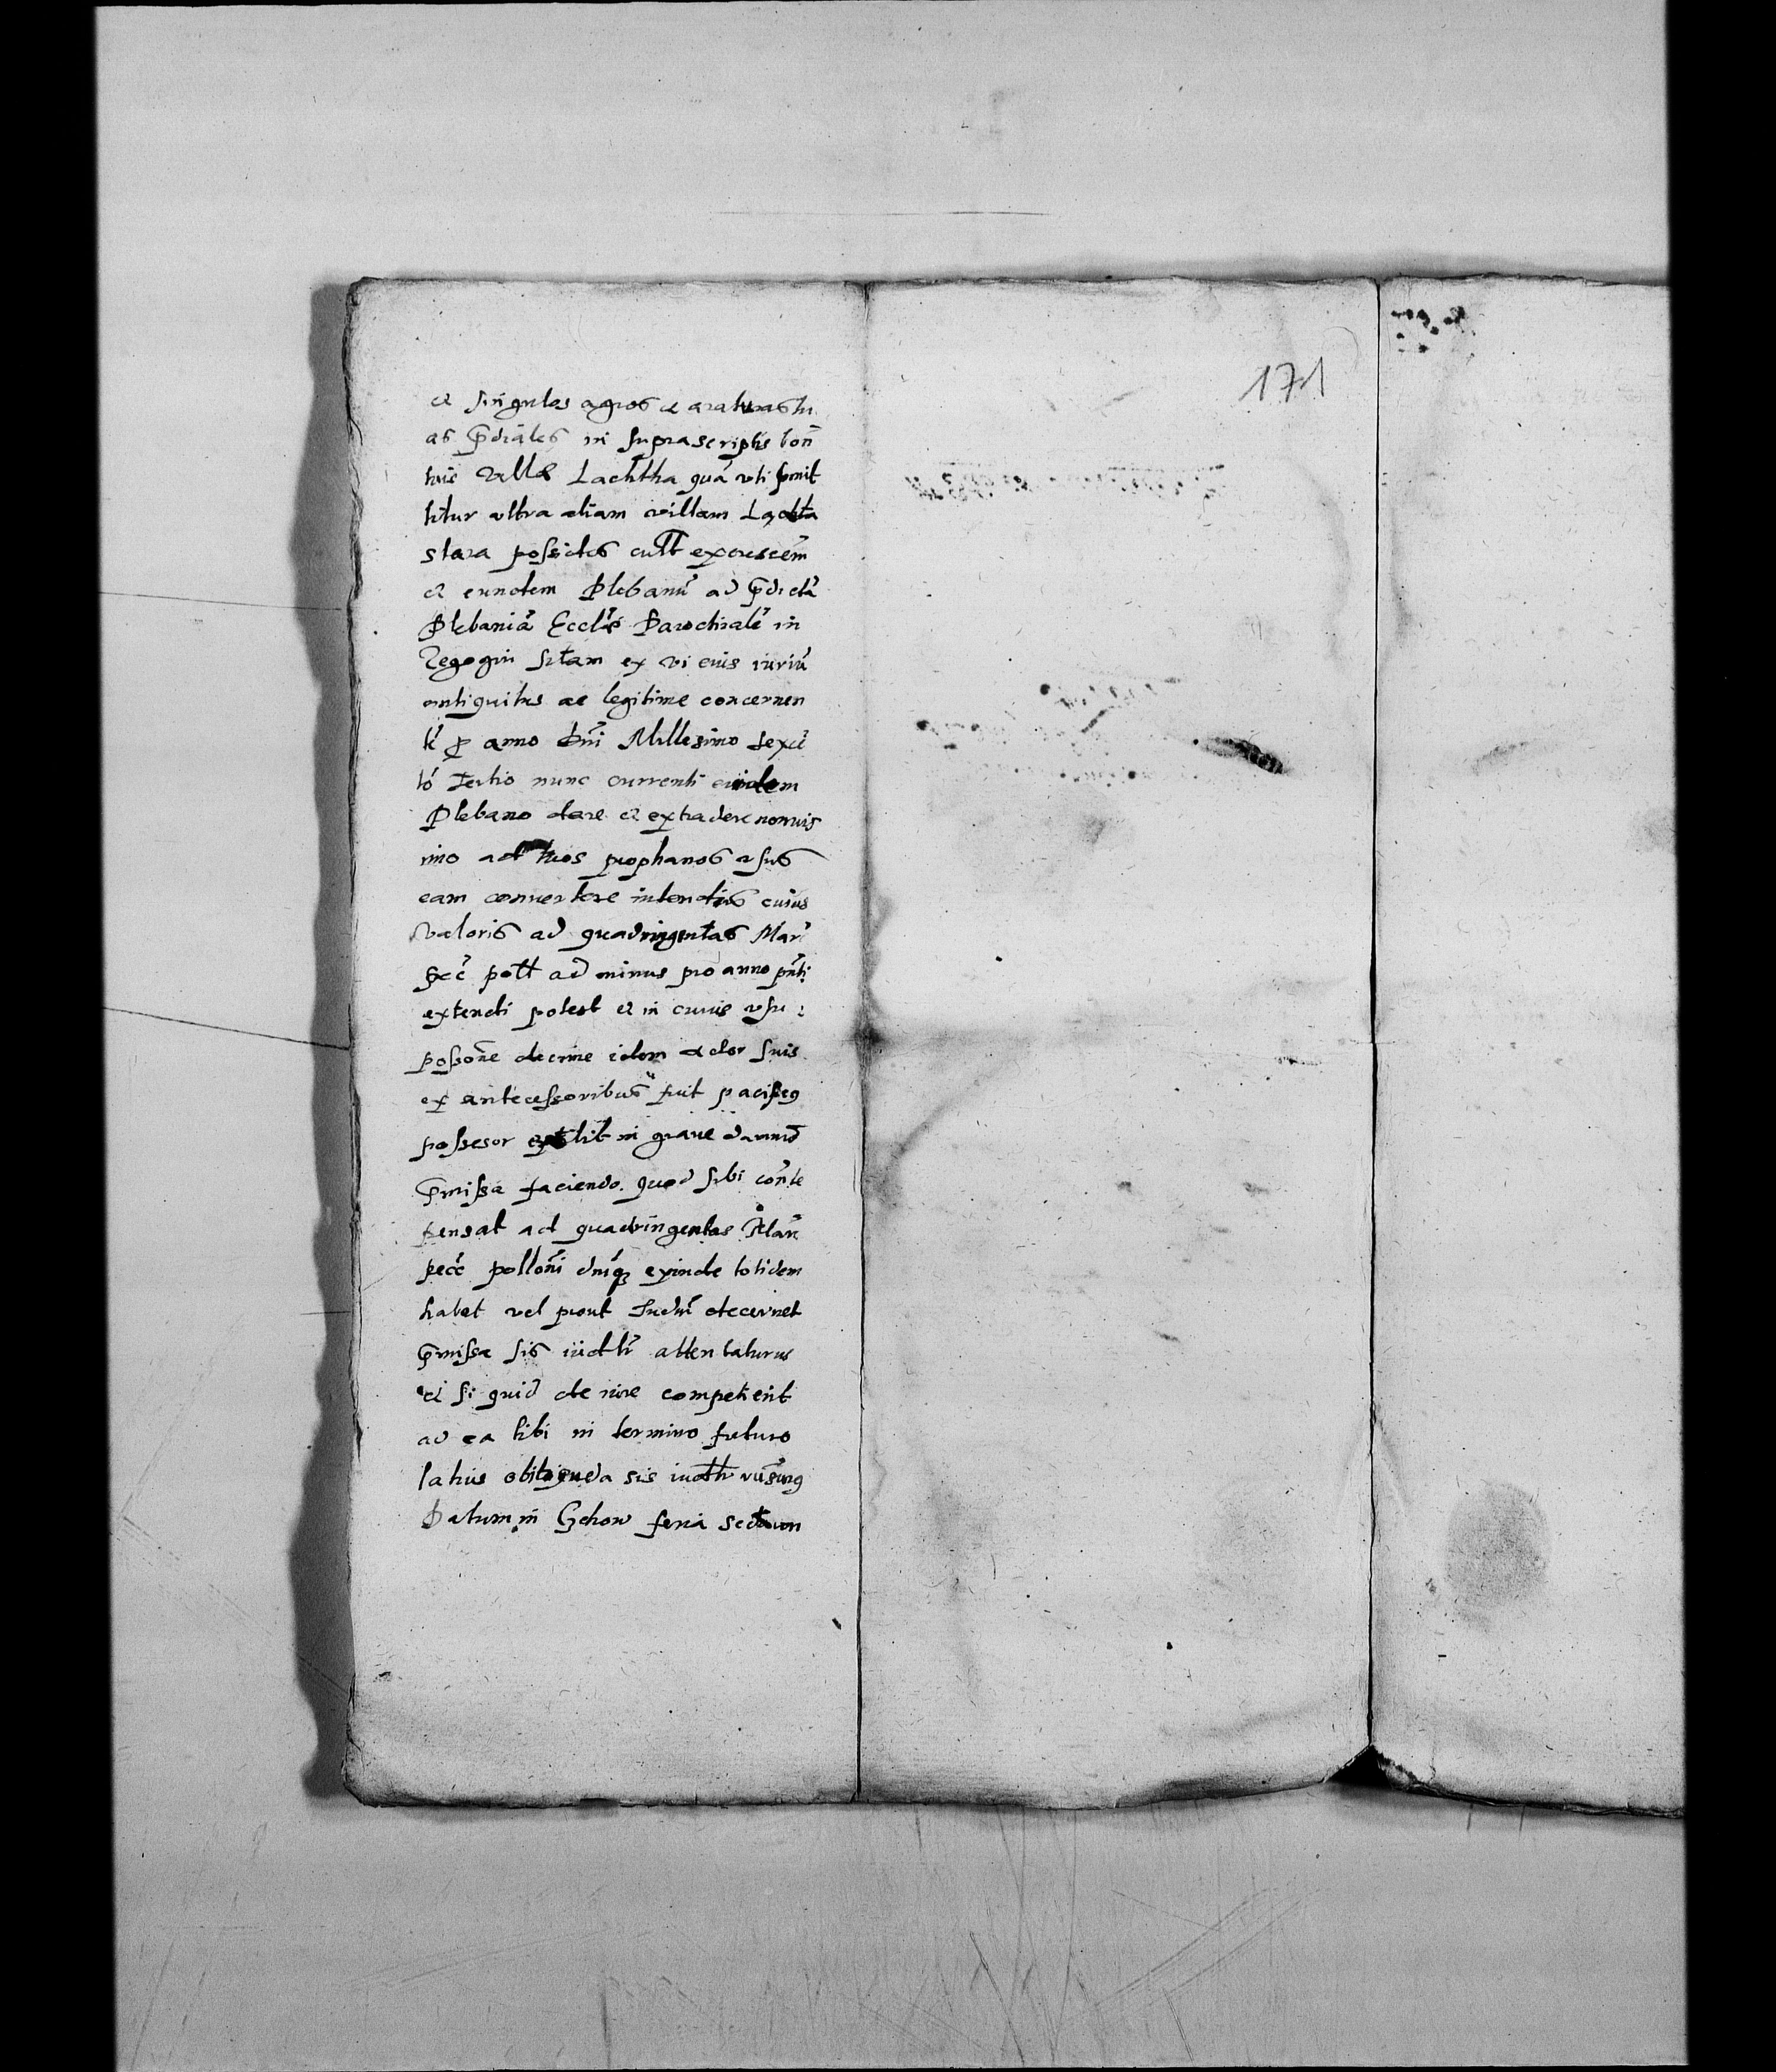 171
et singulos agros et araturas tu
as p̄diales in suprascriptis bon̄
tuis villæ Lachtha quā uti permit
titur ultra aliam villam Lachta
stara possides cult excrescen̄
et eundem Plebanū ad p̄dictā
Plebaniā Eccl̄ie Parochialē in
Rzegocin sitam ex vi eius iuriū
antiquitus ac legitime concernen
tē p anno Dn̄i Millesimo sexcē
tō tertio nunc currenti eidem
Plebano dare et extradere non vis
imo ad tuos prophanos usus
eam convertere intendis cuius
valoris ad quadringentas Mar̄
pecc̄ poll ad minus pro anno pn̄ti
extendi potest et in cuius usu
posson̄e decime idem actor suis
ex antecessoribus fuit pacificus
possesor extitit in graue damnū
p̄missa faciendo quod sibi con̄te
pensat ad quadringentas Mar̄
pecc̄ pollon̄i dn̄iq exinde totidem
habet vel prout Iudm̄ decernet
p̄missa sis iudtr̄ attentaturus
et si quid de iure competierit
ad ea tibi in termino futuro
latius obiicienda sis iudtr
Datum in Czchow feria